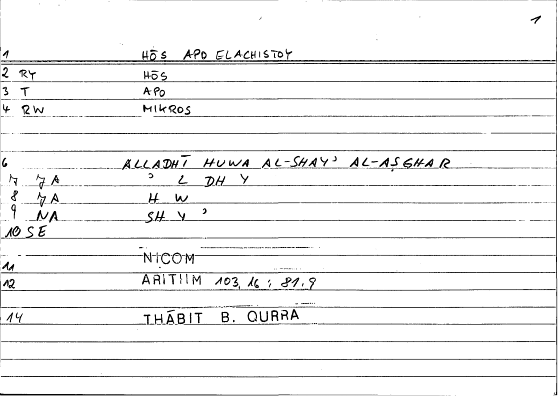 1
1 HŌS APO ELACHISTOY
2 RY HŌS
3 T APO
4 RW MIKROS
6 ALLADHĪ HUWA AL-SHAYʾ AL-AṢGHAR
7 JA ʾ L DH Y
8 JA H W
9 NA SH Y ʾ
10 SE
11 NICOM
12 ARITIIM 103,16 : 81.9
14 THĀBIT B. QURRA